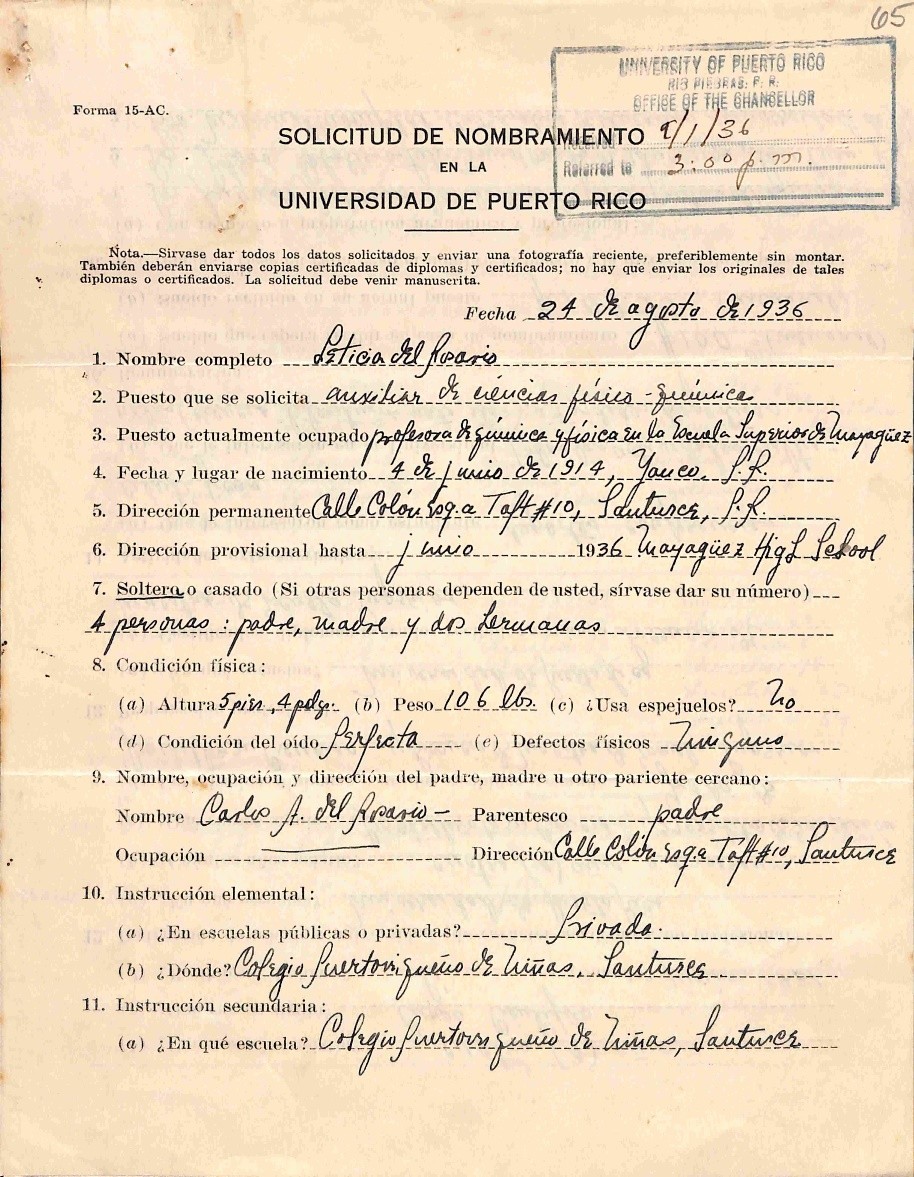 65
UNIVERSITY OF PUERTO RICO
RIO PIEDRAS, P. R.
OFFICE OF THE CHANCELLOR
Received 9/1/36
Referred to 3:00 p.m.
Forma 15-AC.
SOLICITUD DE NOMBRAMIENTO
EN LA
UNIVERSIDAD DE PUERTO RICO
Nota.—Sirvase dar todos los datos solicitados y enviar una fotografía reciente, preferiblemente sin montar.
También deberán enviarse copias certificadas de diplomas y certificados; no hay que enviar los originales de tales
diplomas o certificados. La solicitud debe venir manuscrita.
Fecha 24 de agosto de 1936
1. Nombre completo Leticia del Rosario
2. Puesto que se solicita auxiliar de ciencias físico-químicas
3. Puesto actualmente ocupado profesora de química y física en la Escuela Superior de Mayagüez
4. Fecha y lugar de nacimiento 4 de junio de 1914, Yauco, P.R.
5. Dirección permanente Calle Colón Esq. a Taft #10, Santurce, P.R.
6. Dirección provisional hasta junio 1936 Mayagüez High School
7. Soltera o casado (Si otras personas dependen de usted, sírvase dar su número)
4 personas: padre, madre y dos hermanas
8. Condición física:
(a) Altura 5 pies, 4 pulgs. (b) Peso 106 lbs. (c) ¿Usa espejuelos? No
(d) Condición del oído Perfecta (e) Defectos físicos Ninguno
9. Nombre, ocupación y dirección del padre, madre u otro pariente cercano:
Nombre Carlos A. del Rosario — Parentesco padre
Ocupación Dirección Calle Colón Esq. a Taft #10, Santurce
10. Instrucción elemental:
(a) ¿En escuelas públicas o privadas? Privada.
(b) ¿Dónde? Colegio Puertorriqueño de Niñas, Santurce
11. Instrucción secundaria:
(a) ¿En qué escuela? Colegio Puertorriqueño de Niñas, Santurce